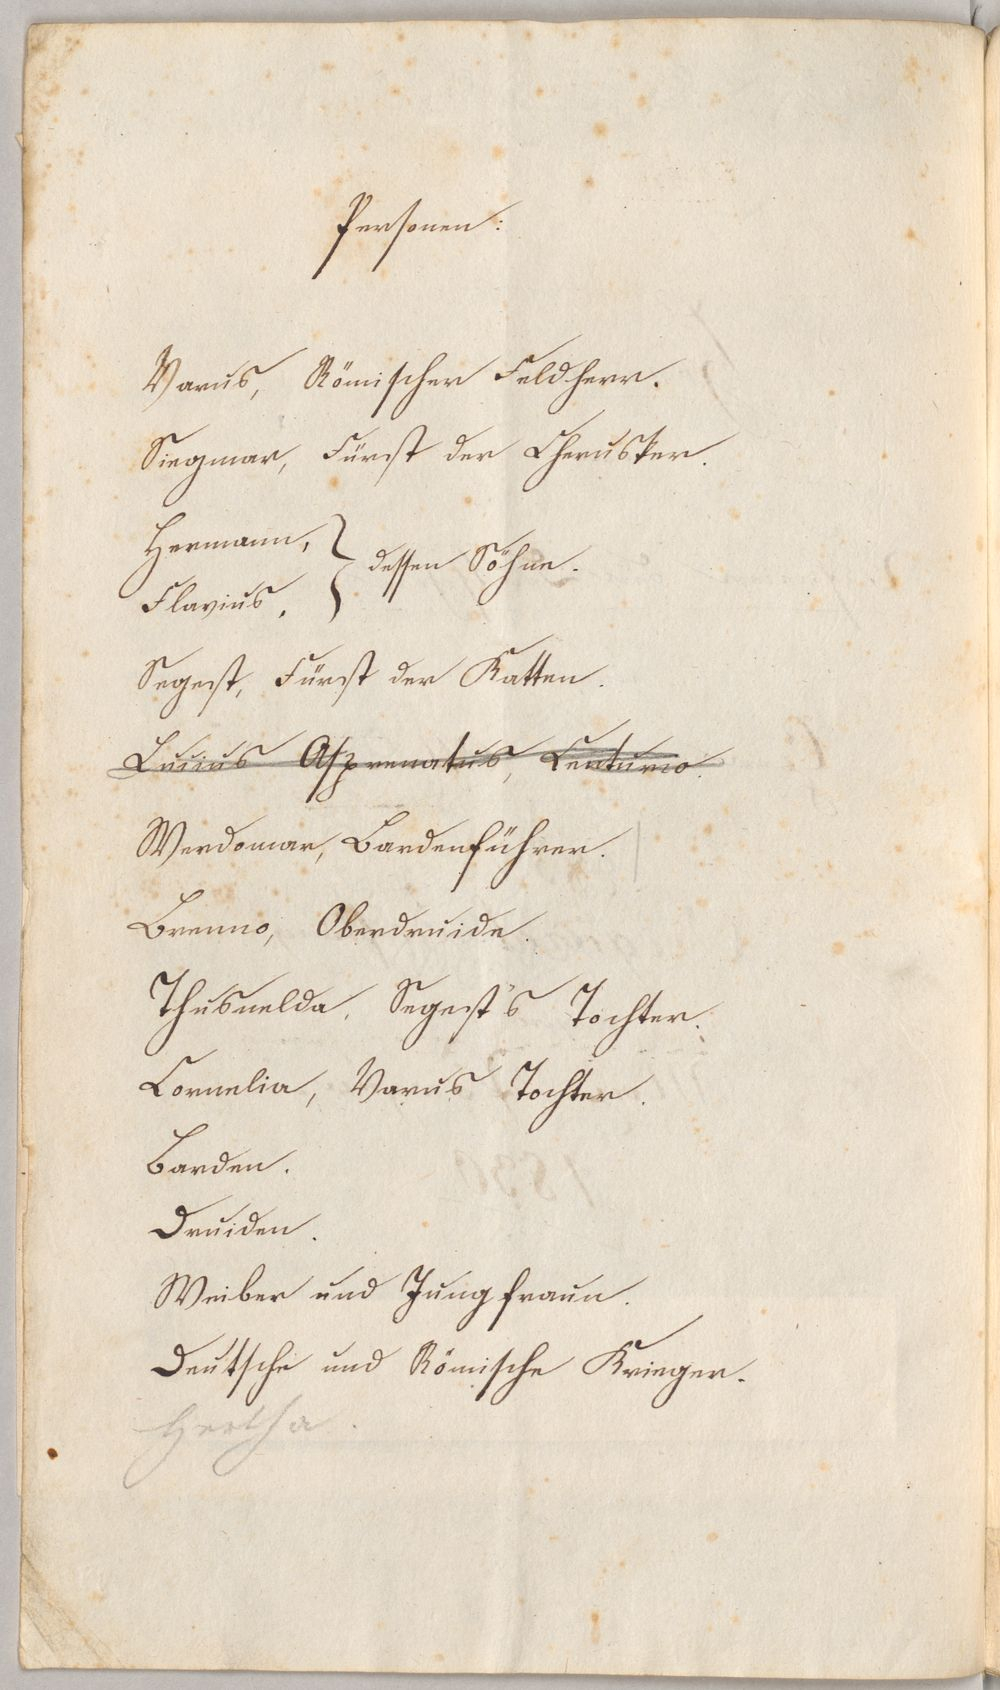 Personen:
Varus, Römischer Feldherr.
Siegmar, Fürst der Cherusker.
Hermann,
Flavius,
} dessen Söhne.
Segest, Fürst der Katten.
Lucius Asprenatus, Centurio.
Werdomar, Bardenführer.
Brenno, Oberdruide.
Thusnelda, Segest's Tochter.
Cornelia, Varus Tochter.
Barden.
Druiden.
Weiber und Jungfraun.
Deutsche und Römische Krieger.
Hertha.